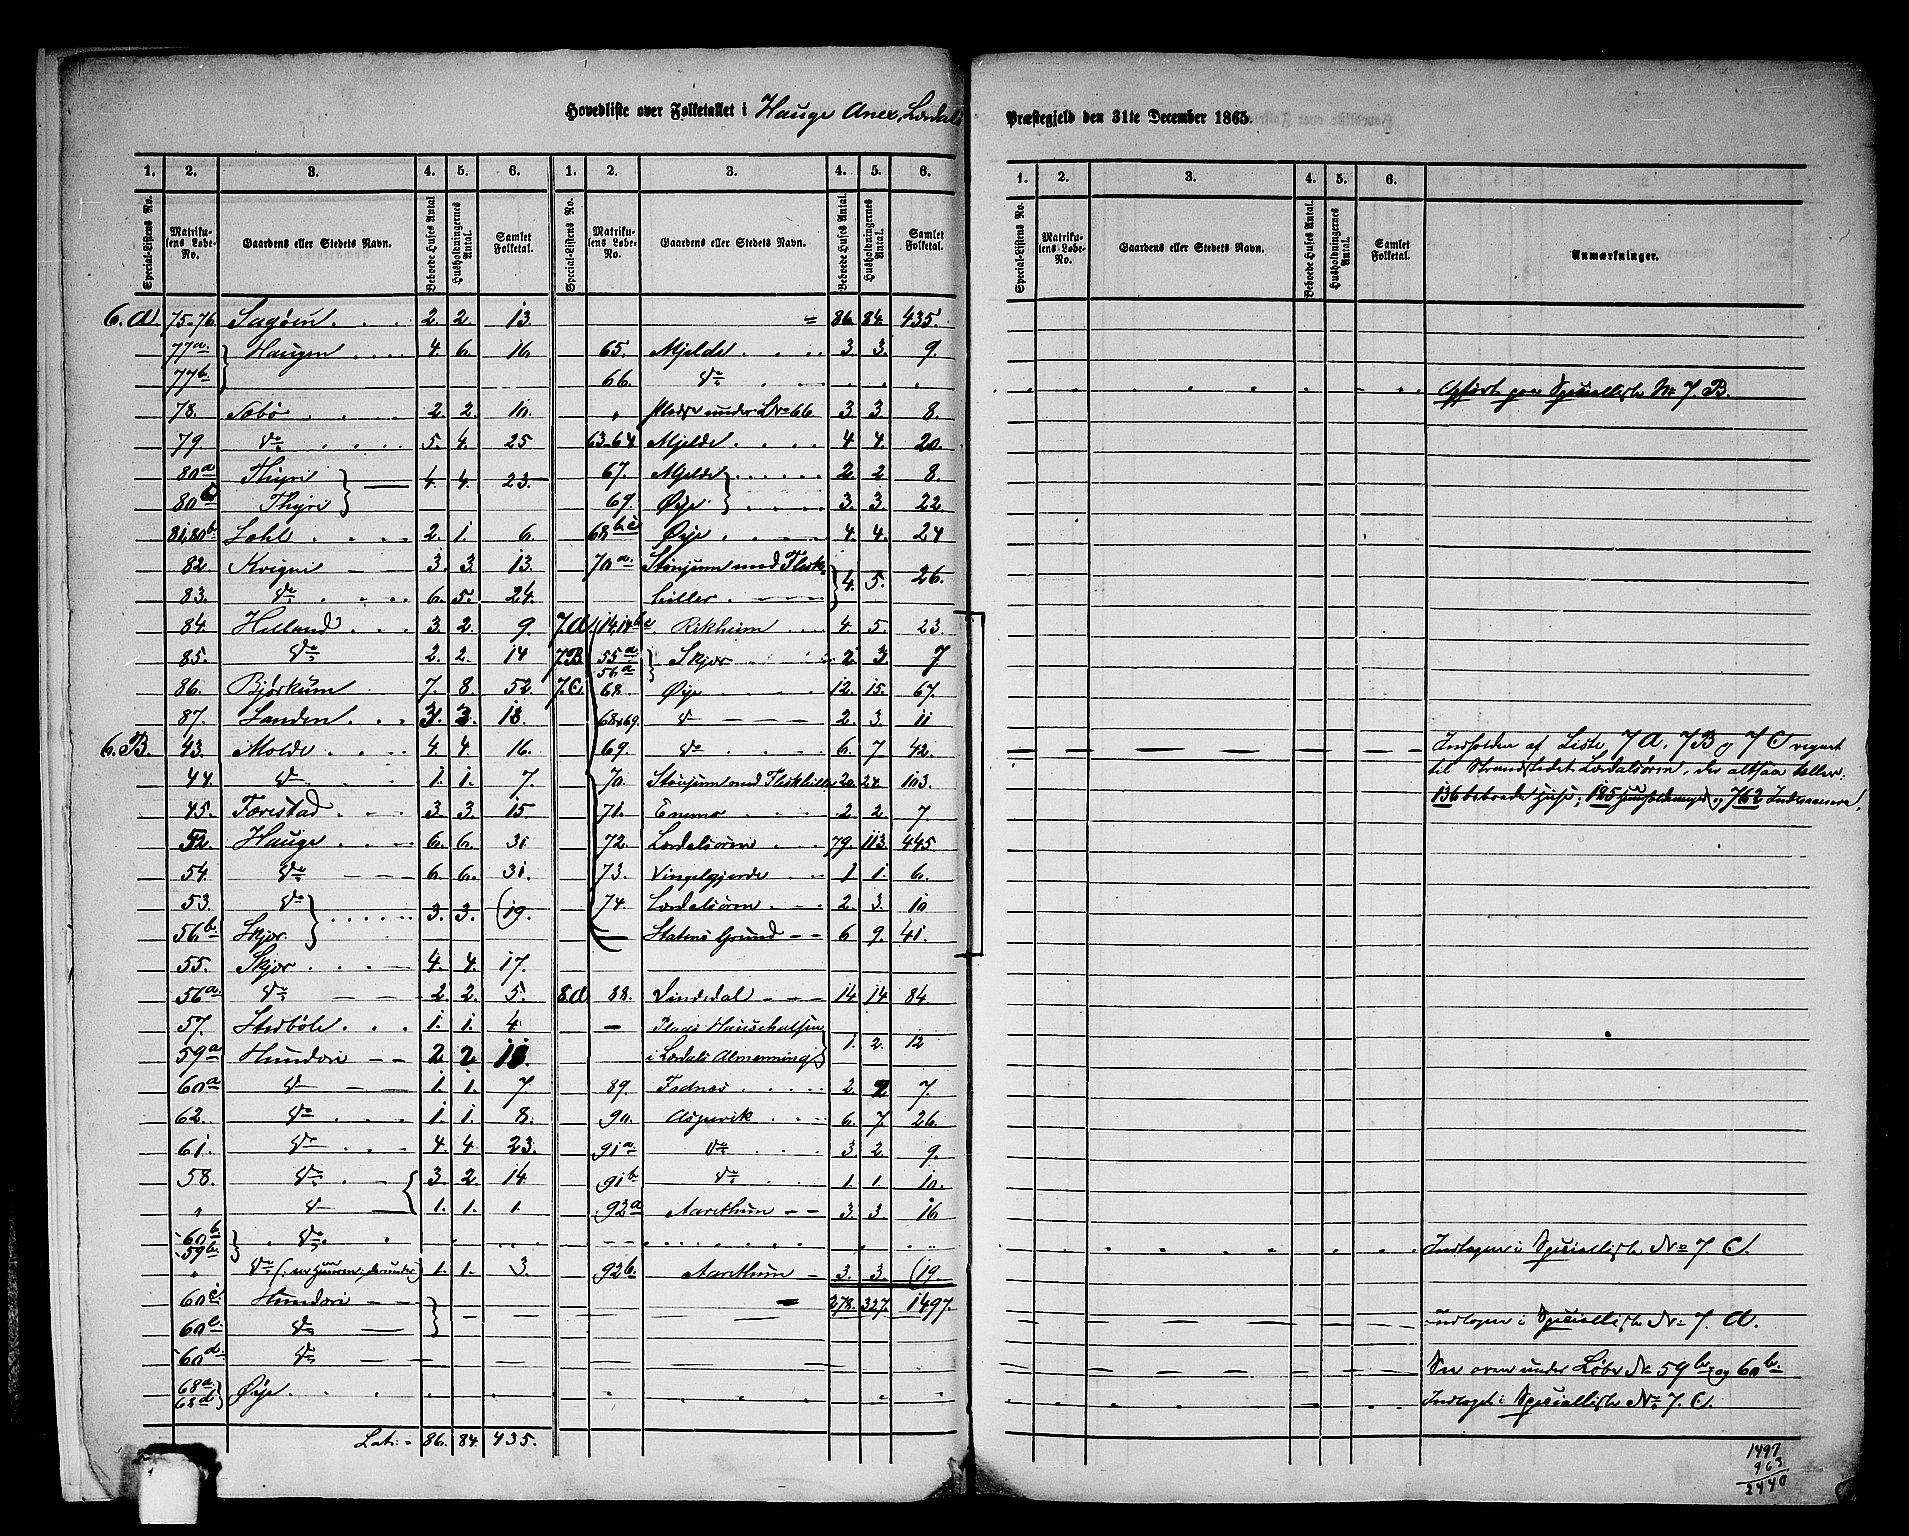 Hovedliste over Folketallet i Hauge Anex, Lærdals
Præstegjeld den 31te December 1865.
1. 2. 3. 4. 5. 6. 1. 2. 3. 4. 5. 6.
Special-Listens No. Matrikulens Løbe-No. Gaardens eller Stedets Navn. Beboede Huses Antal Husholdningernes Antal. Samlet Folketal. Special-Listens No. Matrikulens Løbe-No. Gaardens eller Stedets Navn. Beboede Huses Antal Husholdningernes Antal. Samlet Folketal.
6.A. 75-76. 2. 2. 13.
77a Haugen 4. 6. 16.
77b
78. Sæbø 2. 2. 10.
79. Do 5. 4. 25
80a Thyri 4. 4. 23.
80c Thyri
81,80b 2. 1. 6.
82. Kvigni 3. 3. 13.
83. Do 6. 5. 24.
84. Hilland 3. 2. 9.
85. Do 2. 2. 14
86. Bjørkum 7. 8. 52.
87. Sanden 3. 3. 18.
6.B. 43. Molde 4. 4. 16.
44. Do 1. 1. 7.
45. Tørestad 3. 3. 15
52. Hauge 6. 6. 31
54. Do 6. 6. 31.
53. Do 3. 3. (19.
56b Skjær.
55. Skjær 4. 4. 17.
56a Do 2 2. 5.
57. 1. 1. 4.
59a Hunderi 2 2
60a Do 1 1. 7.
62. Do 1. 1. 8.
61. Do 4. 4 23.
58. Do 3. 2. 14
" Do 1. 1. 1.
60b Do
59b
" Do 1. 1. 3.
60c Hunderi
60e Do
60d Do
68a Øye
68d
Lat. 86. 84. 435.
86. 84. 435.
65. Mjelde 3. 3. 9.
66. Do
" Pladse under Lno 66 3. 3. 8.
63-64 Mjelde 4 4. 20.
67. Mjelde 2. 2 8.
69. Øye 3. 3. 22.
68bc Øye 4. 4. 24
70a Stønjum med Flisk-
hiller 4. 5. 26.
7.A Rikheim 4. 5. 23.
7.B 55a Skjær 2 3. 7
56a
7.C. 68. Øye 12. 15. 67.
68&69. Do 2. 3. 11
69. Do 6. 7 42.
70. Stønjum med Fliskhiller 20. 24. 103.
71. Enemo 2. 2 7.
72. Lærdalsøren 79. 113. 445.
73. Vingelgjerde 1 1. 6.
74. Lærdalsøren 2. 3. 10
— Statens Grund 6 9. 41.
8.A 88. Vindedal 14 14 84.
— Plads
i Lærdals Almenning 1. 2. 12
89. Fadnes 2. 2 7.
90. Aspevik 6. 7. 26.
91a Do 3. 2. 9.
91b Do 1. 1. 10.
92a Aarethun 3. 3 16
92b Aarethun 3. 3. (19.
278. 327. 1497.
1. 2. 3. 4. 5. 6.
Special-Listens No. Matrikulens Løbe-No. Gaardens eller Stedets Navn. Beboede Huses Antal. Husholdningernes Antal. Samlet Folketal. Anmærkninger.
Opført paa Specialliste No 7. B.
Indholdet af Liste 7 A, 7B og 7 C vegnet
til Strandstedet Lærdalsøren, der altsaa tæller:
136 beboede Huse, 185 Husholdninger og 762 Indvaanere.
Indtagen i Specialliste No 7. C.
Indtagen i Specialliste No 7. A.
See oven under Løbe No 59b og 60b.
Indtaget i Specialliste No 7. C.
1497
963
2440